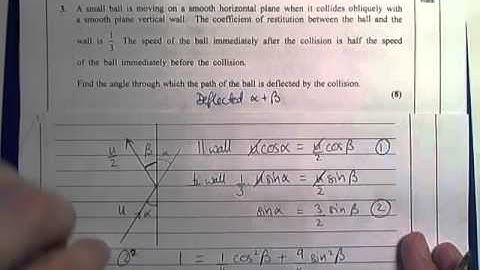 3. A small ball is moving on a smooth horizontal plane when it collides obliquely with
a smooth plane vertical wall. The coefficient of restitution between the ball and the
wall is 1/3. The speed of the ball immediately after the collision is half the speed
of the ball immediately before the collision.
Find the angle through which the path of the ball is deflected by the collision.
(8)
Deflected α + β
u/2 β α
u α
|| wall u cos α = u/2 cos β ①
to wall 1/3 u sin α = u/2 sin β
sin α = 3/2 sin β ②
②² 1 = 1/4 cos²β + 9/4 sin²β